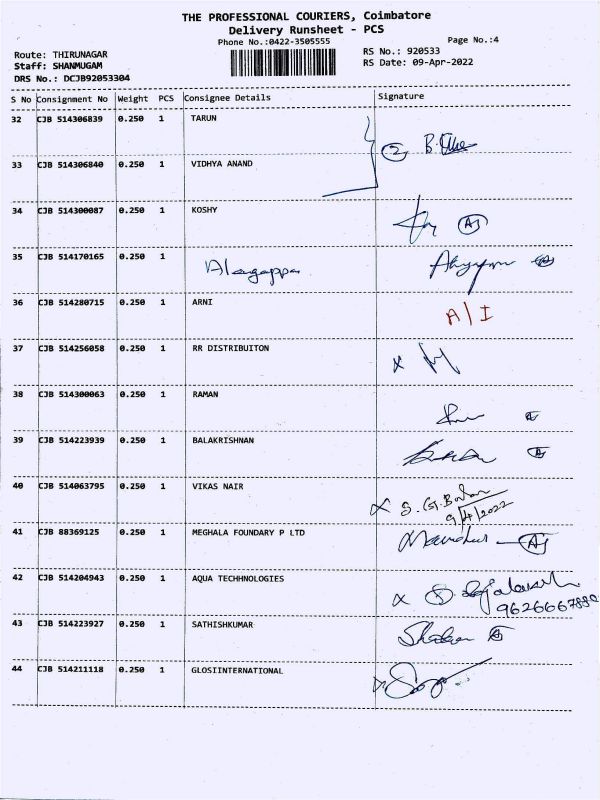 THE PROFESSIONAL COURIERS, Coimbatore
Delivery Runsheet - PCS
Phone No.:0422-3505555
Page No.:4
Route: THIRUNAGAR
RS No.: 920533
Staff: SHANMUGAM
RS Date: 09-Apr-2022
DRS No.: DCJB92053304
S No Consignment No Weight PCS Consignee Details Signature
32 CJB 514306839 0.250 1 TARUN
2 B.
33 CJB 514306840 0.250 1 VIDHYA ANAND
34 CJB 514300087 0.250 1 KOSHY
35 CJB 514170165 0.250 1 Alagappa
36 CJB 514280715 0.250 1 ARNI A/I
37 CJB 514256058 0.250 1 RR DISTRIBUITON x
38 CJB 514300063 0.250 1 RAMAN
39 CJB 514223939 0.250 1 BALAKRISHNAN
40 CJB 514063795 0.250 1 VIKAS NAIR x
9/4/2022
41 CJB 88369125 0.250 1 MEGHALA FOUNDARY P LTD
42 CJB 514204943 0.250 1 AQUA TECHHNOLOGIES x
43 CJB 514223927 0.250 1 SATHISHKUMAR
44 CJB 514211118 0.250 1 GLOSIINTERNATIONAL